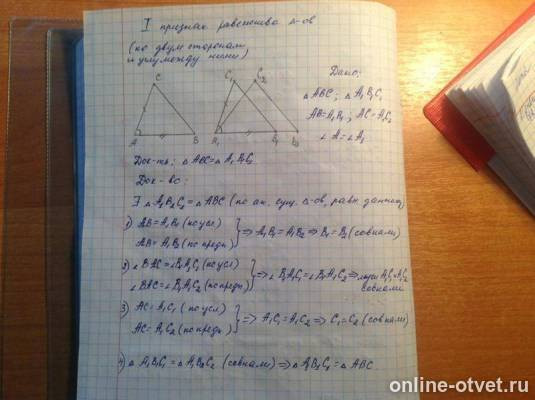 I признак равенства Δ-ов
(по двум сторонам
и углу между ними)
C
A
B
C₁
C₂
A₁
B₁
B₂
Дано:
Δ ABC; Δ A₁B₁C₁
AB=A₁B₁; AC=A₁C₁
∠A=∠A₁
Док-ть: Δ ABC=Δ A₁B₁C₁
Док-во:
Δ A₁B₂C₂=Δ ABC (по ак. сущ. Δ-ов, равн. данному)
1) AB=A₁B₁ (по усл)
AB=A₁B₂ (по предп)
⇒ A₁B₁=A₁B₂ ⇒ B₁=B₂ (совпали)
2) ∠BAC=∠B₁A₁C₁ (по усл)
∠BAC=∠B₂A₁C₂ (по предп)
⇒ ∠B₁A₁C₁=∠B₂A₁C₂ ⇒ лучи A₁C₁ и A₁C₂
совпали
3) AC=A₁C₁ (по усл)
AC=A₁C₂ (по предп)
⇒ A₁C₁=A₁C₂ ⇒ C₁=C₂ (совпали)
4) Δ A₁B₁C₁=Δ A₁B₂C₂ (совпали) ⇒ Δ A₁B₁C₁=Δ ABC
online-otvet.ru